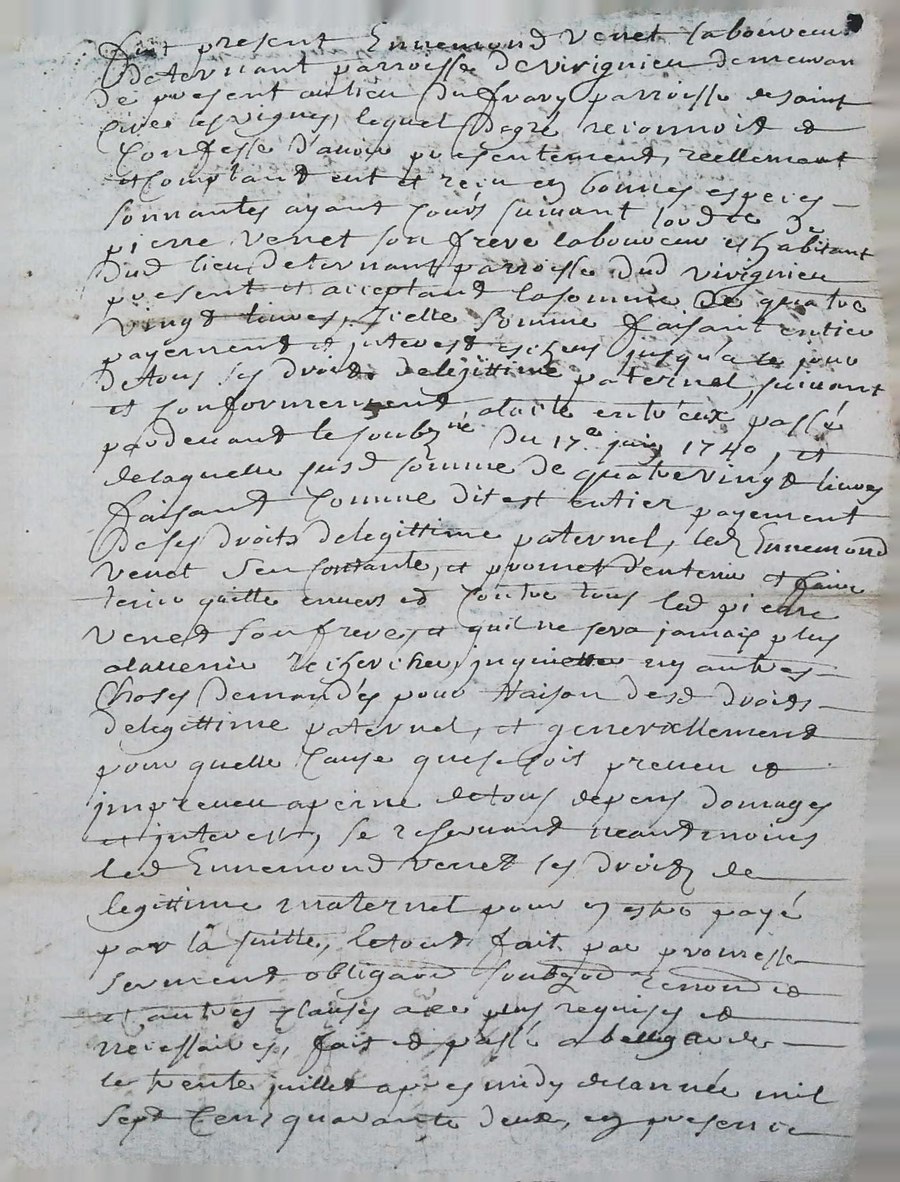 fut present Ennemond venet laboureur
deternant parroisse de virignieu demeuran
de present au lieu du fravy parroisse de saint
cire les vignes, lequel degré reconnoit et
confesse d'avoir presentement, reellement
et comptant eut et reçu en bonnes especes
sonnantes ayant cours suivant lordce de
pierre venet son frere laboureur et habitant
dud lieu deternant parroisse dud virignieu
present et acceptand la somme de quatre
vingt livres, Icelle somme faisant entier
payement et interest eschus jusqu'a ce jour
de tous ses droits delegittime paternel, suivant
et conformement, alacte entr'eux passé
pardevant le soubzne du 17e juin 1740, et
delaquelle susd somme de quatrevingt livres
faisant comme dit est entier payement
de ses droits delegittime paternel, led Ennemond
venet s'en contante, et promet d'entenir et faire
tenir quitte envers et contre tous led pierre
venet son frere, et quil ne sera jamais plus
alavenir recherché, inquietté ny autres
choses demandés pour raison desd droits
delegittime paternel, et generallement
pour quelle cause que se soit preveu et
impreveu apeine detous depens domages
et interest, se reservant neantmoins
led Ennemond venet ses droits de
legittime maternel pour en estre payé
par la suitte, le tout fait par promesse
serment obligaon soubzon renond et
et autres clauses a ce plus requises et
necessaires, fait et passé a bellegarde
le trente juillet apres midy delannée mil
sept cens quarante deux, en presence